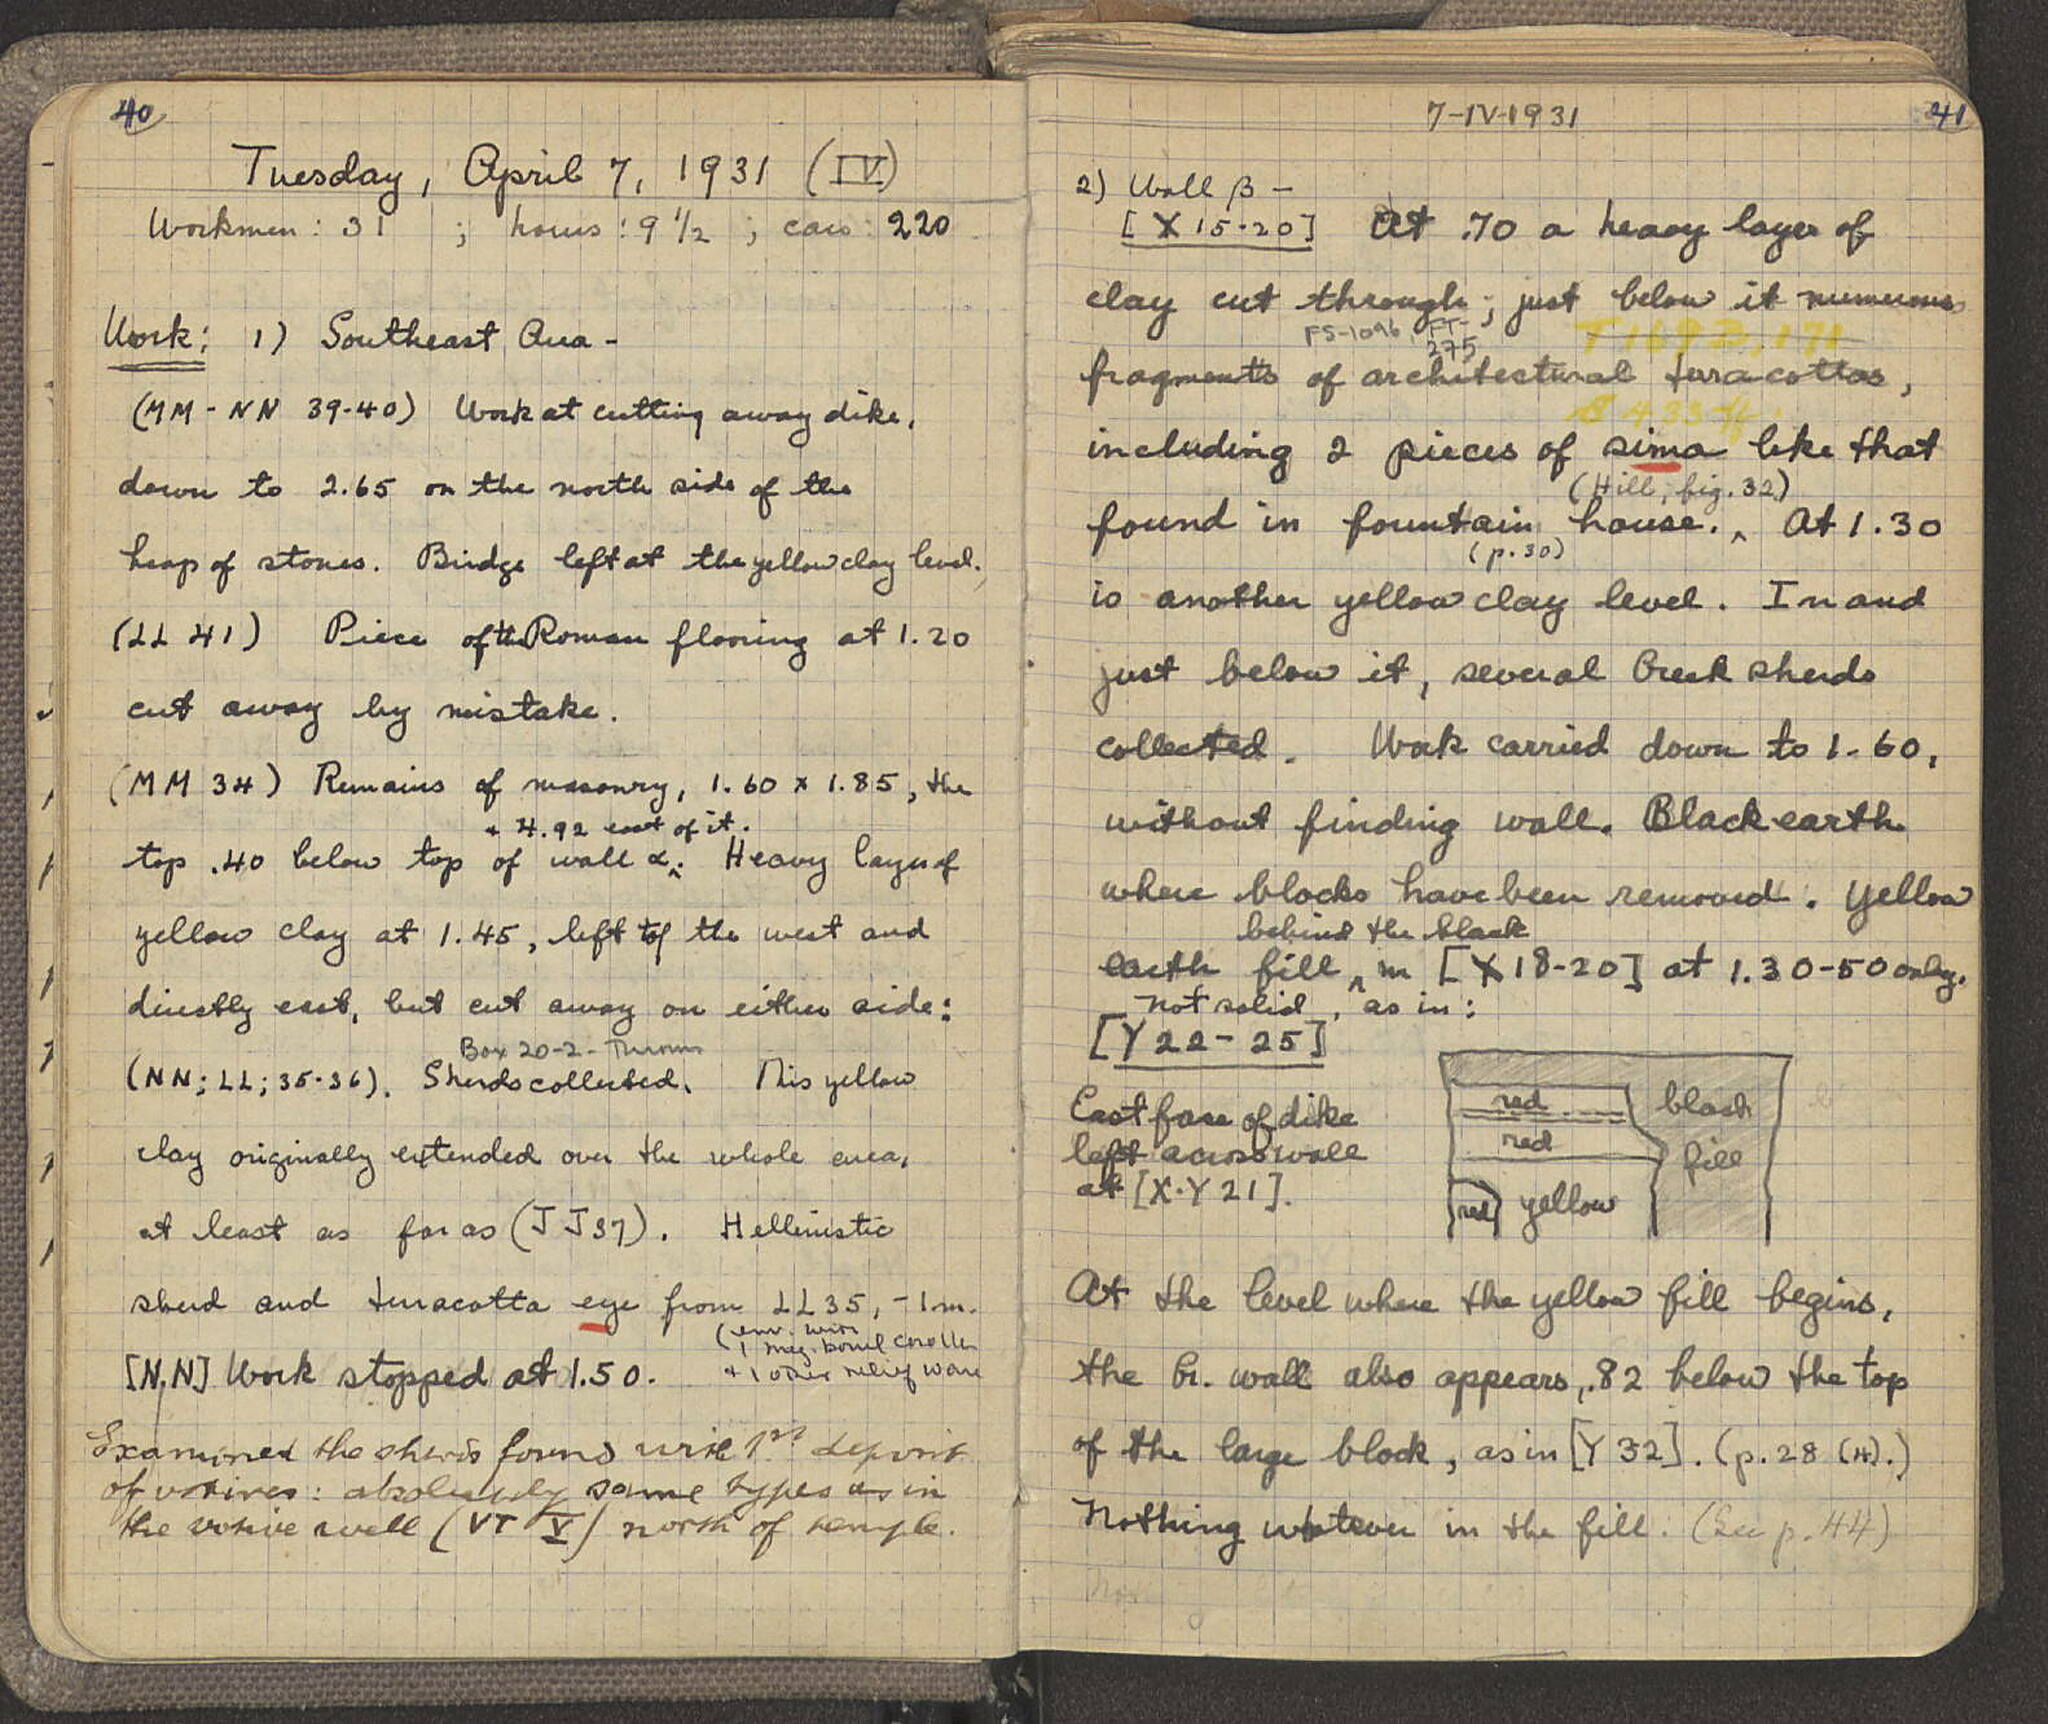 40
Tuesday, April 7, 1931 (IV)
Workmen: 31 ; hours: 9 1/2 ; cars: 220
Work: 1) Southeast Area -
(MM - NN 39-40) Work at cutting away dike,
down to 2.65 on the north side of the
heap of stones. Bridge left at the yellow clay level.
(LL 41) Piece of the Roman flooring at 1.20
cut away by mistake.
(MM 34) Remains of masonry, 1.60 x 1.85, the
+ 4.92 east of it.
top .40 below top of wall α. Heavy layer of
yellow clay at 1.45, left to the west and
directly east, but cut away on either side:
Box 20-2 - Thrown
(NN; LL; 35-36). Sherds collected. This yellow
clay originally extended over the whole area,
at least as far as (JJ37). Hellenistic
sherd and terracotta eye from LL35, -1m.
(env. with
1 meg. bowl
+ 1 other relief ware
[N.N] Work stopped at 1.50.
Examined the sherds found with 1st deposit
of votives: absolutely same types as in
the votive well (VT V) north of temple.
7-IV-1931
41
2) Wall β -
[X 15-20] At .70 a heavy layer of
clay cut through; just below it numerous
FS-1096, FT-
275
T 169 B, 171
fragments of architectural terracottas,
S 433
including 2 pieces of sima like that
(Hill, fig. 32)
found in fountain house. ^ At 1.30
(p. 30)
is another yellow clay level. In and
just below it, several Greek sherds
collected. Work carried down to 1.60,
without finding wall. Black earth
where blocks have been removed. Yellow
behind the black
earth fill ^ in [X 18-20] at 1.30-50 only.
Not solid, as in:
[Y 22-25]
East face of dike
left across wall
at [X-Y 21].
red
red
red
yellow
black
fill
At the level where the yellow fill begins,
the Gr. wall also appears, .82 below the top
of the large block, as in [Y 32]. (p. 28 (4).)
Nothing whatever in the fill. (See p. 44)